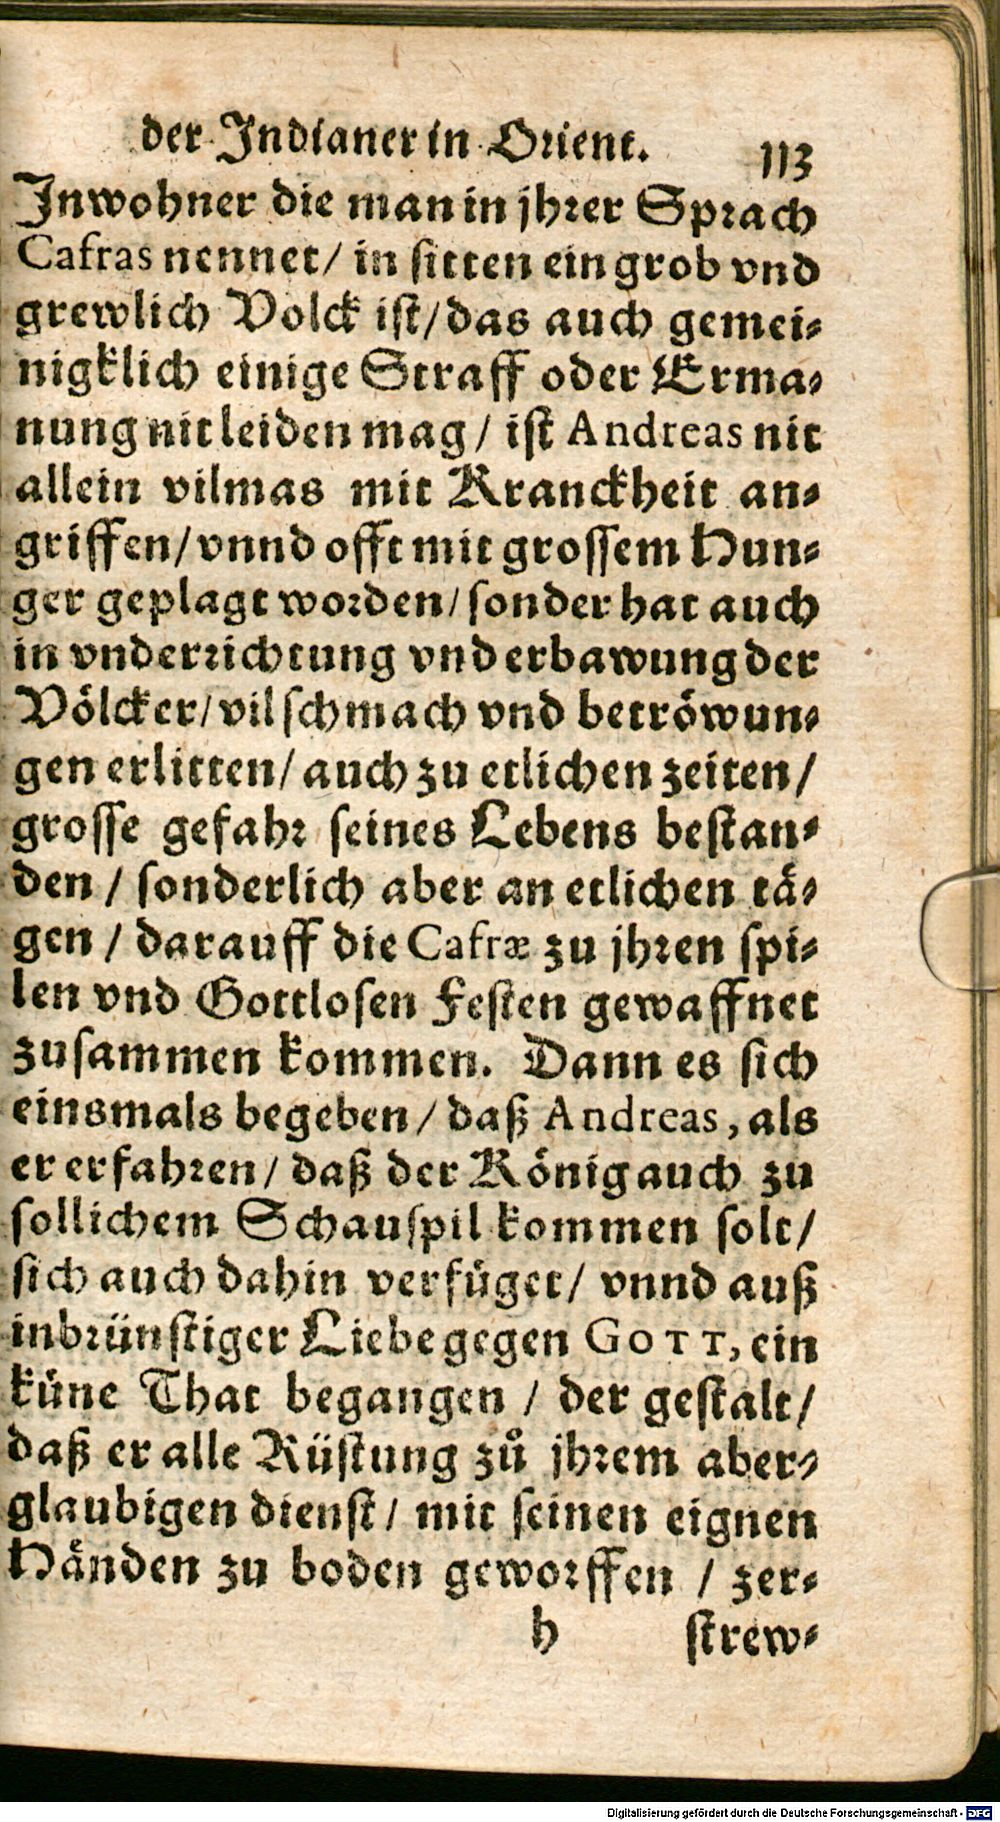 der Indianer in Orient. 113
Inwohner die man in jhrer Sprach
Cafras nennet/ in sitten ein grob vnd
grewlich Volck ist/ das auch gemei-
nigklich einige Straff oder Erma-
nung nit leiden mag / ist Andreas nit
allein vilmas mit Kranckheit an-
griffen/ vnnd offt mit grossem Hun-
ger geplagt worden/ sonder hat auch
in vnderrichtung vnd erbawung der
Völcker/ vil schmach vnd betröwun-
gen erlitten/ auch zu etlichen zeiten/
grosse gefahr seines Lebens bestan-
den / sonderlich aber an etlichen tä-
gen / darauff die Cafræ zu jhren spi-
len vnd Gottlosen Festen gewaffnet
zusammen kommen. Dann es sich
einsmals begeben / daß Andreas, als
er erfahren/ daß der König auch zu
sollichem Schauspil kommen solt/
sich auch dahin verfüget/ vnnd auß
inbrünstiger Liebe gegen GOTT, ein
küne That begangen / der gestalt/
daß er alle Rüstung zů jhrem aber-
glaubigen dienst/ mit seinen eignen
Händen zu boden geworffen / zer-
h strew-
Digitalisierung gefördert durch die Deutsche Forschungsgemeinschaft - DFG